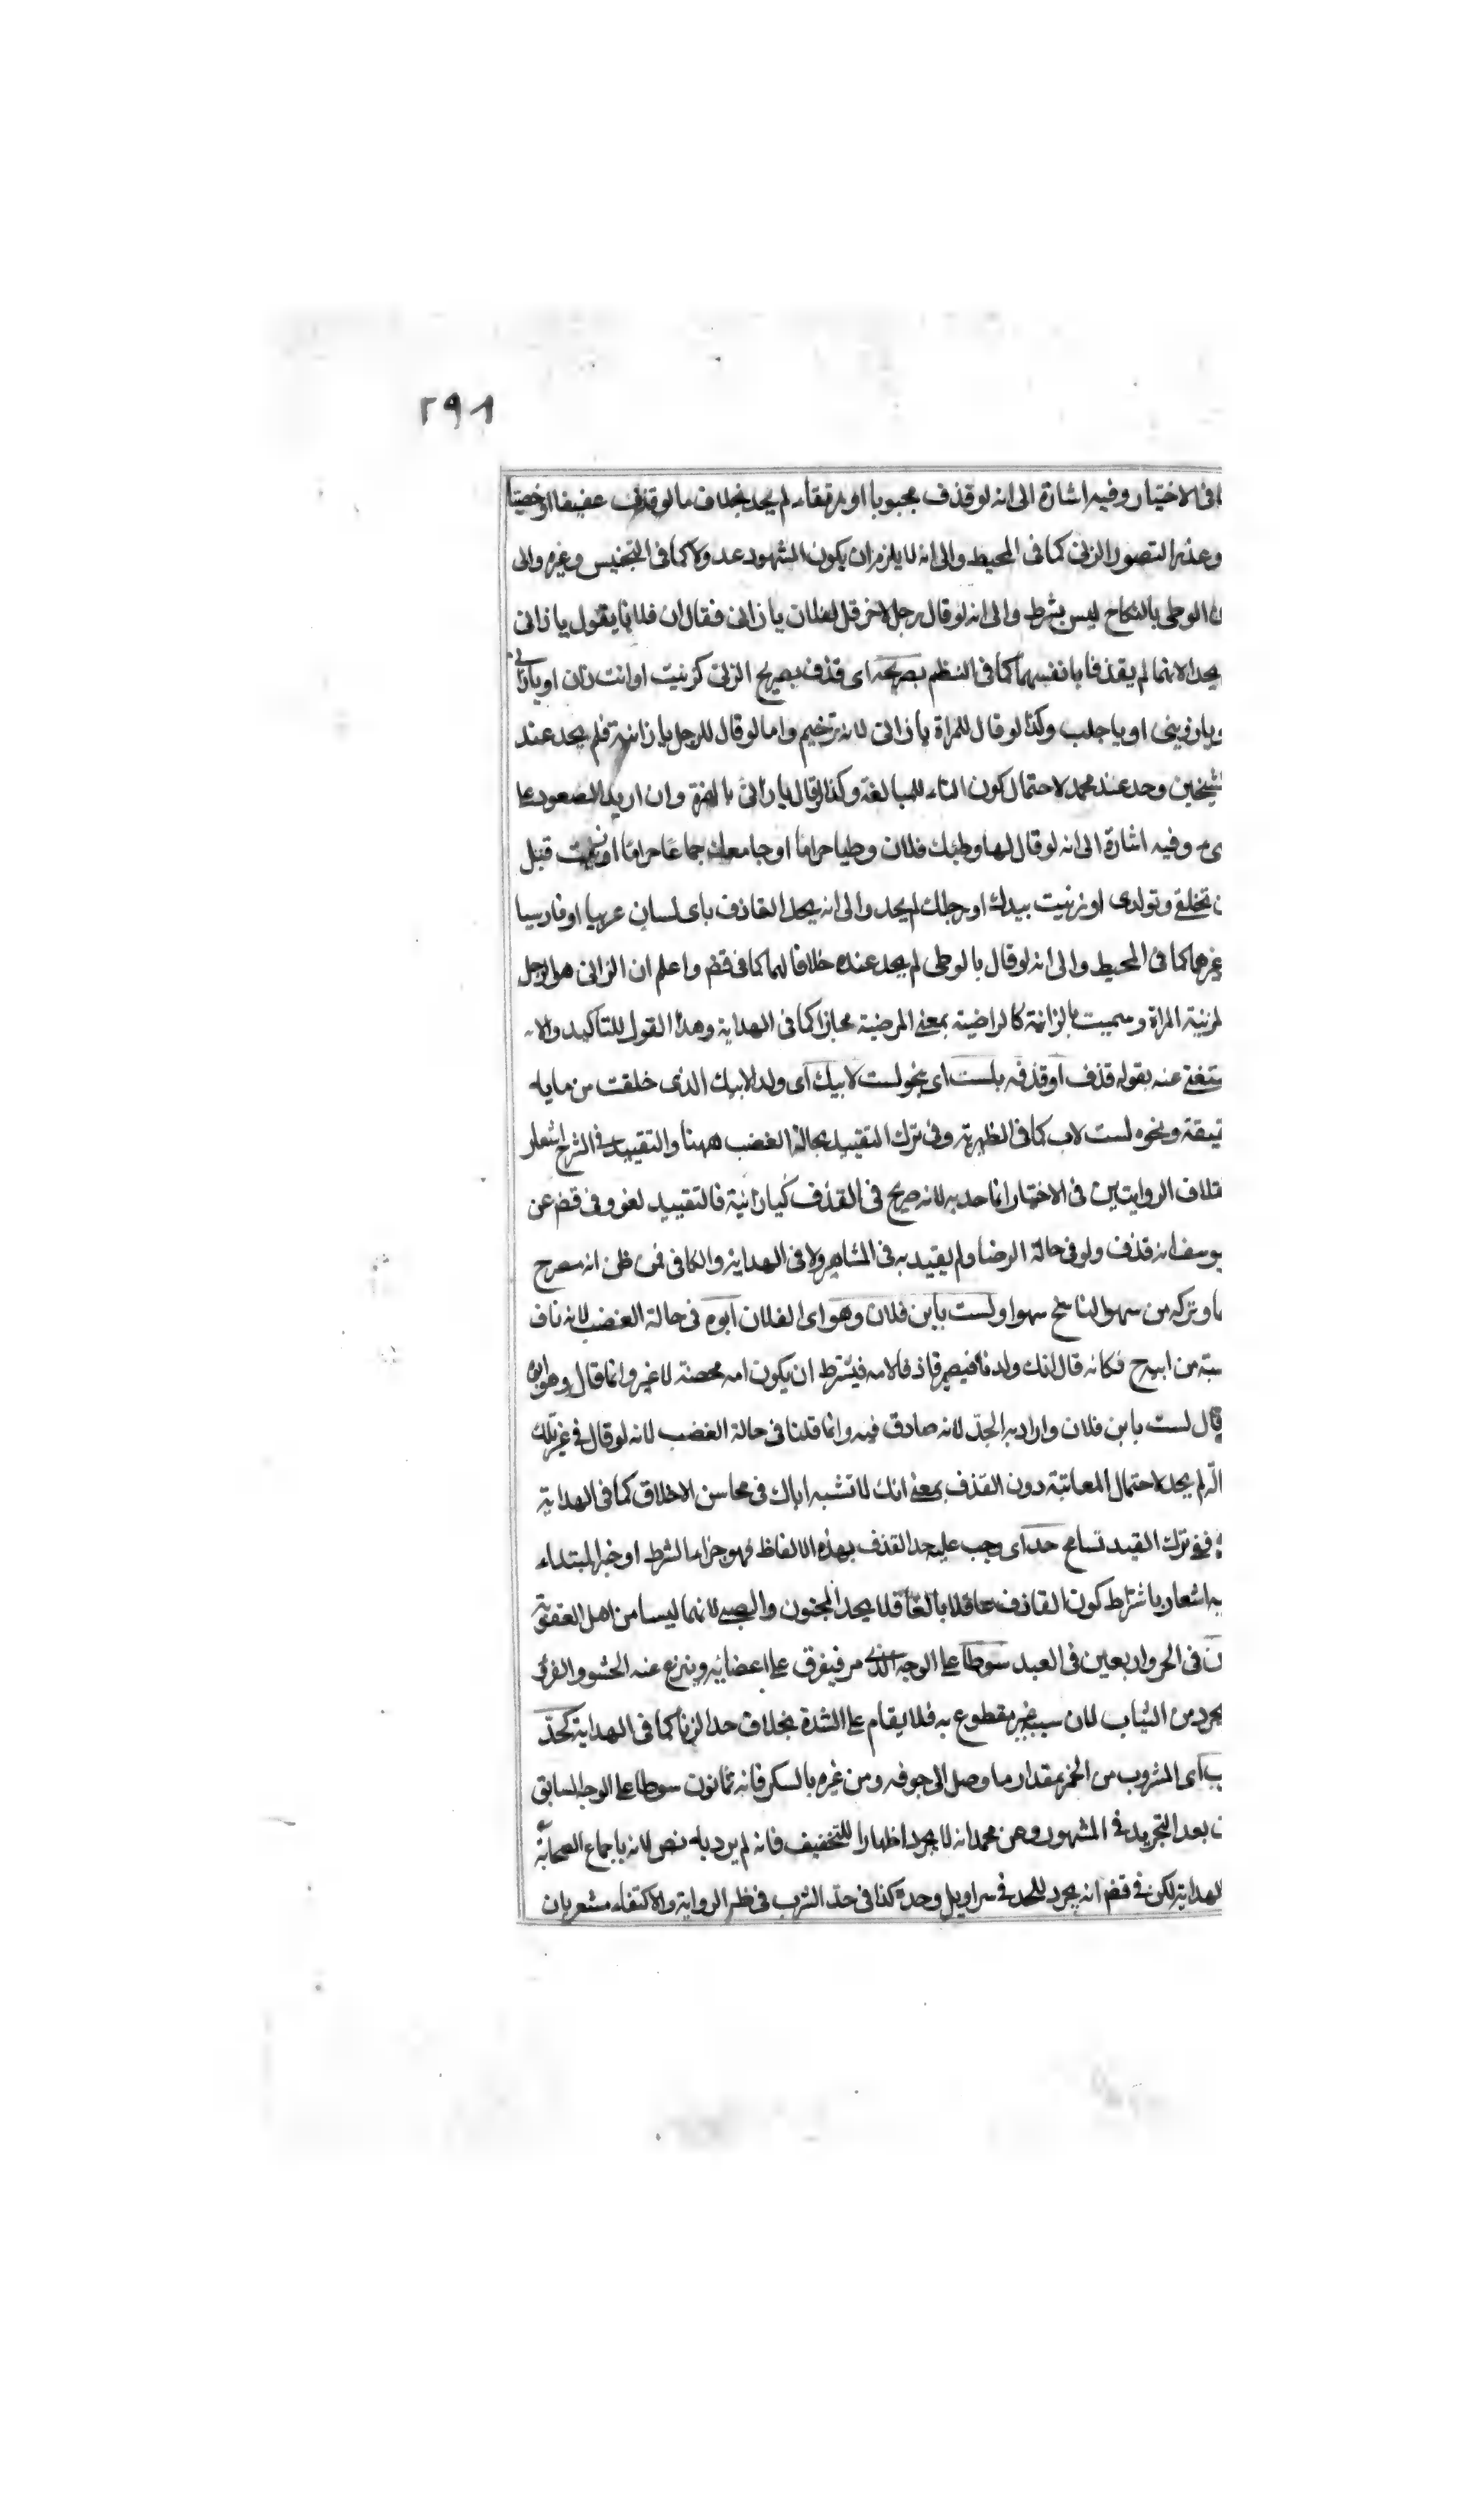 ٢٩٨
فى الاختيار وفيه اشارة الى انه لو قذف مجبوبا او رتقاء لم يحد بخلاف ما لو قذف عفيفا او خصيا
كما فى المحيط والى انه لا يلزم ان يكون الشهود عدولا كما فى التجنيس وغيره والى
ان الوطى بالنكاح ليس بشرط والى انه لو قال رجل لاخر قل لفلان يا زانى فقال ان فلانا يقول يا زانى
يحد لانهما لم يقذفا بانفسهما كما فى النظم بصريحه اى قذف بصريح الزنى كزنيت او انت زان او يا زانى
او يا جلب وكذا لو قال للمراة يا زانى لانه ترخيم واما لو قال للرجل يا زانية فلم يحد عند
الشيخين وحد عند محمد لاحتمال كون التاء للمبالغة وكذا لو قال يا زانئ بالهمزة وان اريد الصعود على
وفيه اشارة الى انه لو قال لها وطئك فلان وطيا حراما او جامعك جماعا حراما او زنيت قبل
ان تخلقى وتولدى او زنيت بيدك او رجلك لم يحد والى انه يحد القاذف باى لسان عربيا او فارسيا
او غيرهما كما فى المحيط والى انه لو قال بالوطى لم يحد عنده خلافا لهما كما فى قضخ واعلم ان الزانى هو الرجل
المزنية المراة وسميت بالزانية كالراضية بمعنى المرضية مجازا كما فى الهداية وهذا القول للتاكيد والا
مستغنى عنه بقوله قذف او قذفه بلست اى بنحو لست لابيك اى ولد لابيك الذى خلقت من مايه
ونحوه لست لاب كما فى الظهيرية وفى ترك التقييد بحالة الغضب ههنا والتقييد فى الشرح اشعار
باختلاف الروايتين فى الاختيار انما حد به لانه صريح فى القذف كيا زانية فالتقييد لغو وفى قضخ عن
ابو يوسف انه قذف ولو فى حالة الرضا ولم يقيد به فى المشاهير ولا فى الهداية والكافى فمن ظن انه مصرح
وتركه من سهو الناسخ سها او لست بابن فلان وهو اى الفلان ابوه فى حالة الغضب لانه ناف
نسبته من ابيه فكانه قال انك ولد زنا فيصير قاذفا لامه فيشترط ان يكون امه محصنة لا غير وانما قال وهو ابوه
قال لست بابن فلان واراد به الجد لانه صادق فيه وانما قلنا فى حالة الغضب لانه لو قال فى غير تلك
الحالة لم يحد لاحتمال المعاتبة دون القذف بمعنى انك لا تشبه اباك فى محاسن الاخلاق كما فى الهداية
ففى ترك القيد تسامح حد اى وجب عليه حد القذف بهذه الالفاظ فهو جزاء الشرط او خبر المبتداء
وفيه اشعار باشتراط كون القاذف عاقلا بالغا فلا يحد المجنون والصبى لانهما ليسا من اهل العقوبة
ثمانين فى الحر واربعين فى العبد سوطا على الوجه الذى مر فيفرق على اعضايه وينزع عنه الحشو والفرو
يجرد من الثياب لان سببه غير مقطوع به فلا يقام على الشدة بخلاف حد الزنا كما فى الهداية كحد
الشرب اى المشروب من الخمر بمقدار ما وصل الى جوفه ومن غيره بالسكر فانه ثمانون سوطا على الوجه السابق
بعد التجريد فى المشهور وعن محمد انه لا يجرد اظهارا للتخفيف فانه لم يرد به نص لانه باجماع الصحابة
الهداية لكن فى قضخ انه يجرد للحد فى سراويل وحده كذا فى حد الشرب فى ظاهر الرواية والاكتفاء مشعر بان